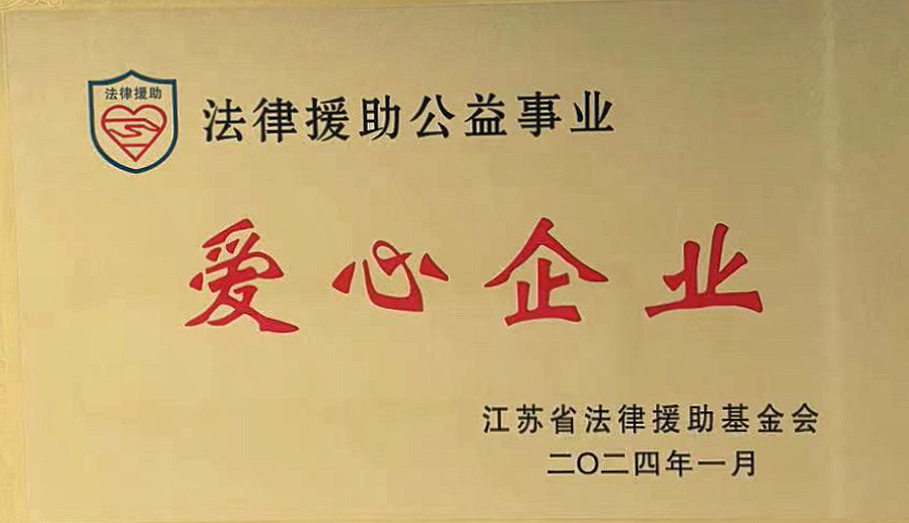 法律援助
法律援助公益事业
爱心企业
江苏省法律援助基金会
二〇二四年一月